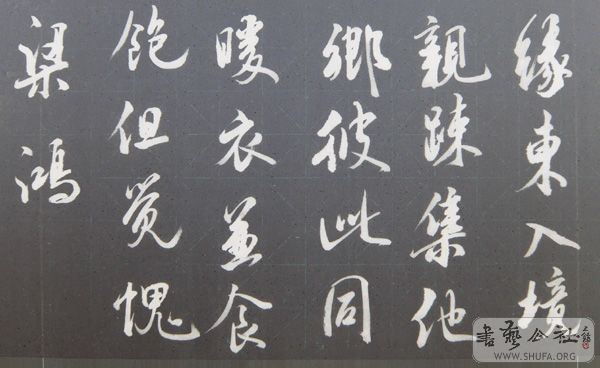 緣東入境
親踈集他
鄉彼此同
暖衣兼食
飽但覺愧
梁鴻
書藝公社
WWW.SHUFA.ORG